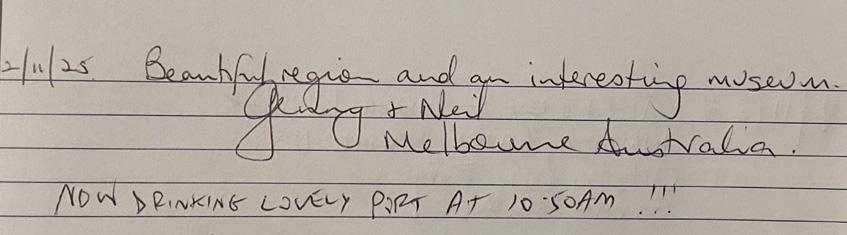 2/11/25. Beautiful region and an interesting museum.
Jenny + Neil
Melbourne Australia.
NOW DRINKING LOVELY PORT AT 10.50AM !!!